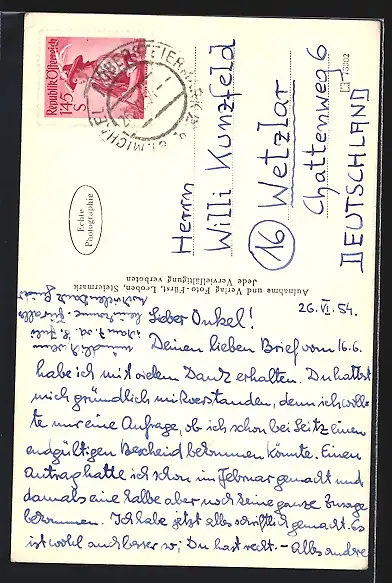 Republik Österreich
1·45
S
ST. MICHAEL
OBERSTEIERMARK
Herrn
Willi Kunzfeld
(16) Wetzlar
Chattenweg 6
DEUTSCHLAND
Echte
Photographie
Aufnahme und Verlag Foto-Fürst, Leoben, Steiermark
Jede Vervielfältigung verboten
26. VI. 54.
Lieber Onkel!
Deinen lieben Brief vom 16.6.
habe ich mit vielem Dank erhalten. Du hattest
mich gründlich missverstanden, denn ich woll-
te nur eine Anfrage, ob ich schon bei Leitz einen
endgültigen Bescheid bekommen könnte. Einen
Antrag hatte ich schon im Februar gemacht und
damals eine halbe aber noch keine ganze Zusage
bekommen. Ich habe jetzt alles schriftlich gemacht. Es
ist wohl auch besser so; Du hast recht. – Alles andere
mündlich wenn